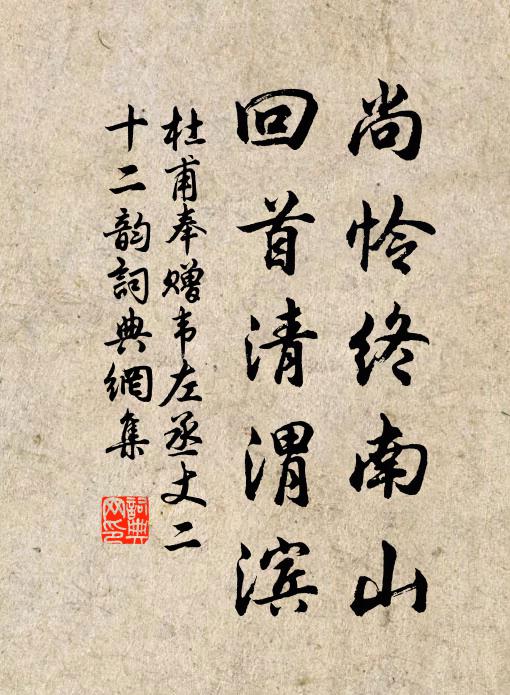 尚怜终南山
回首清渭滨
杜甫奉赠韦左丞丈二
十二韵詞典網集
詞典
网印